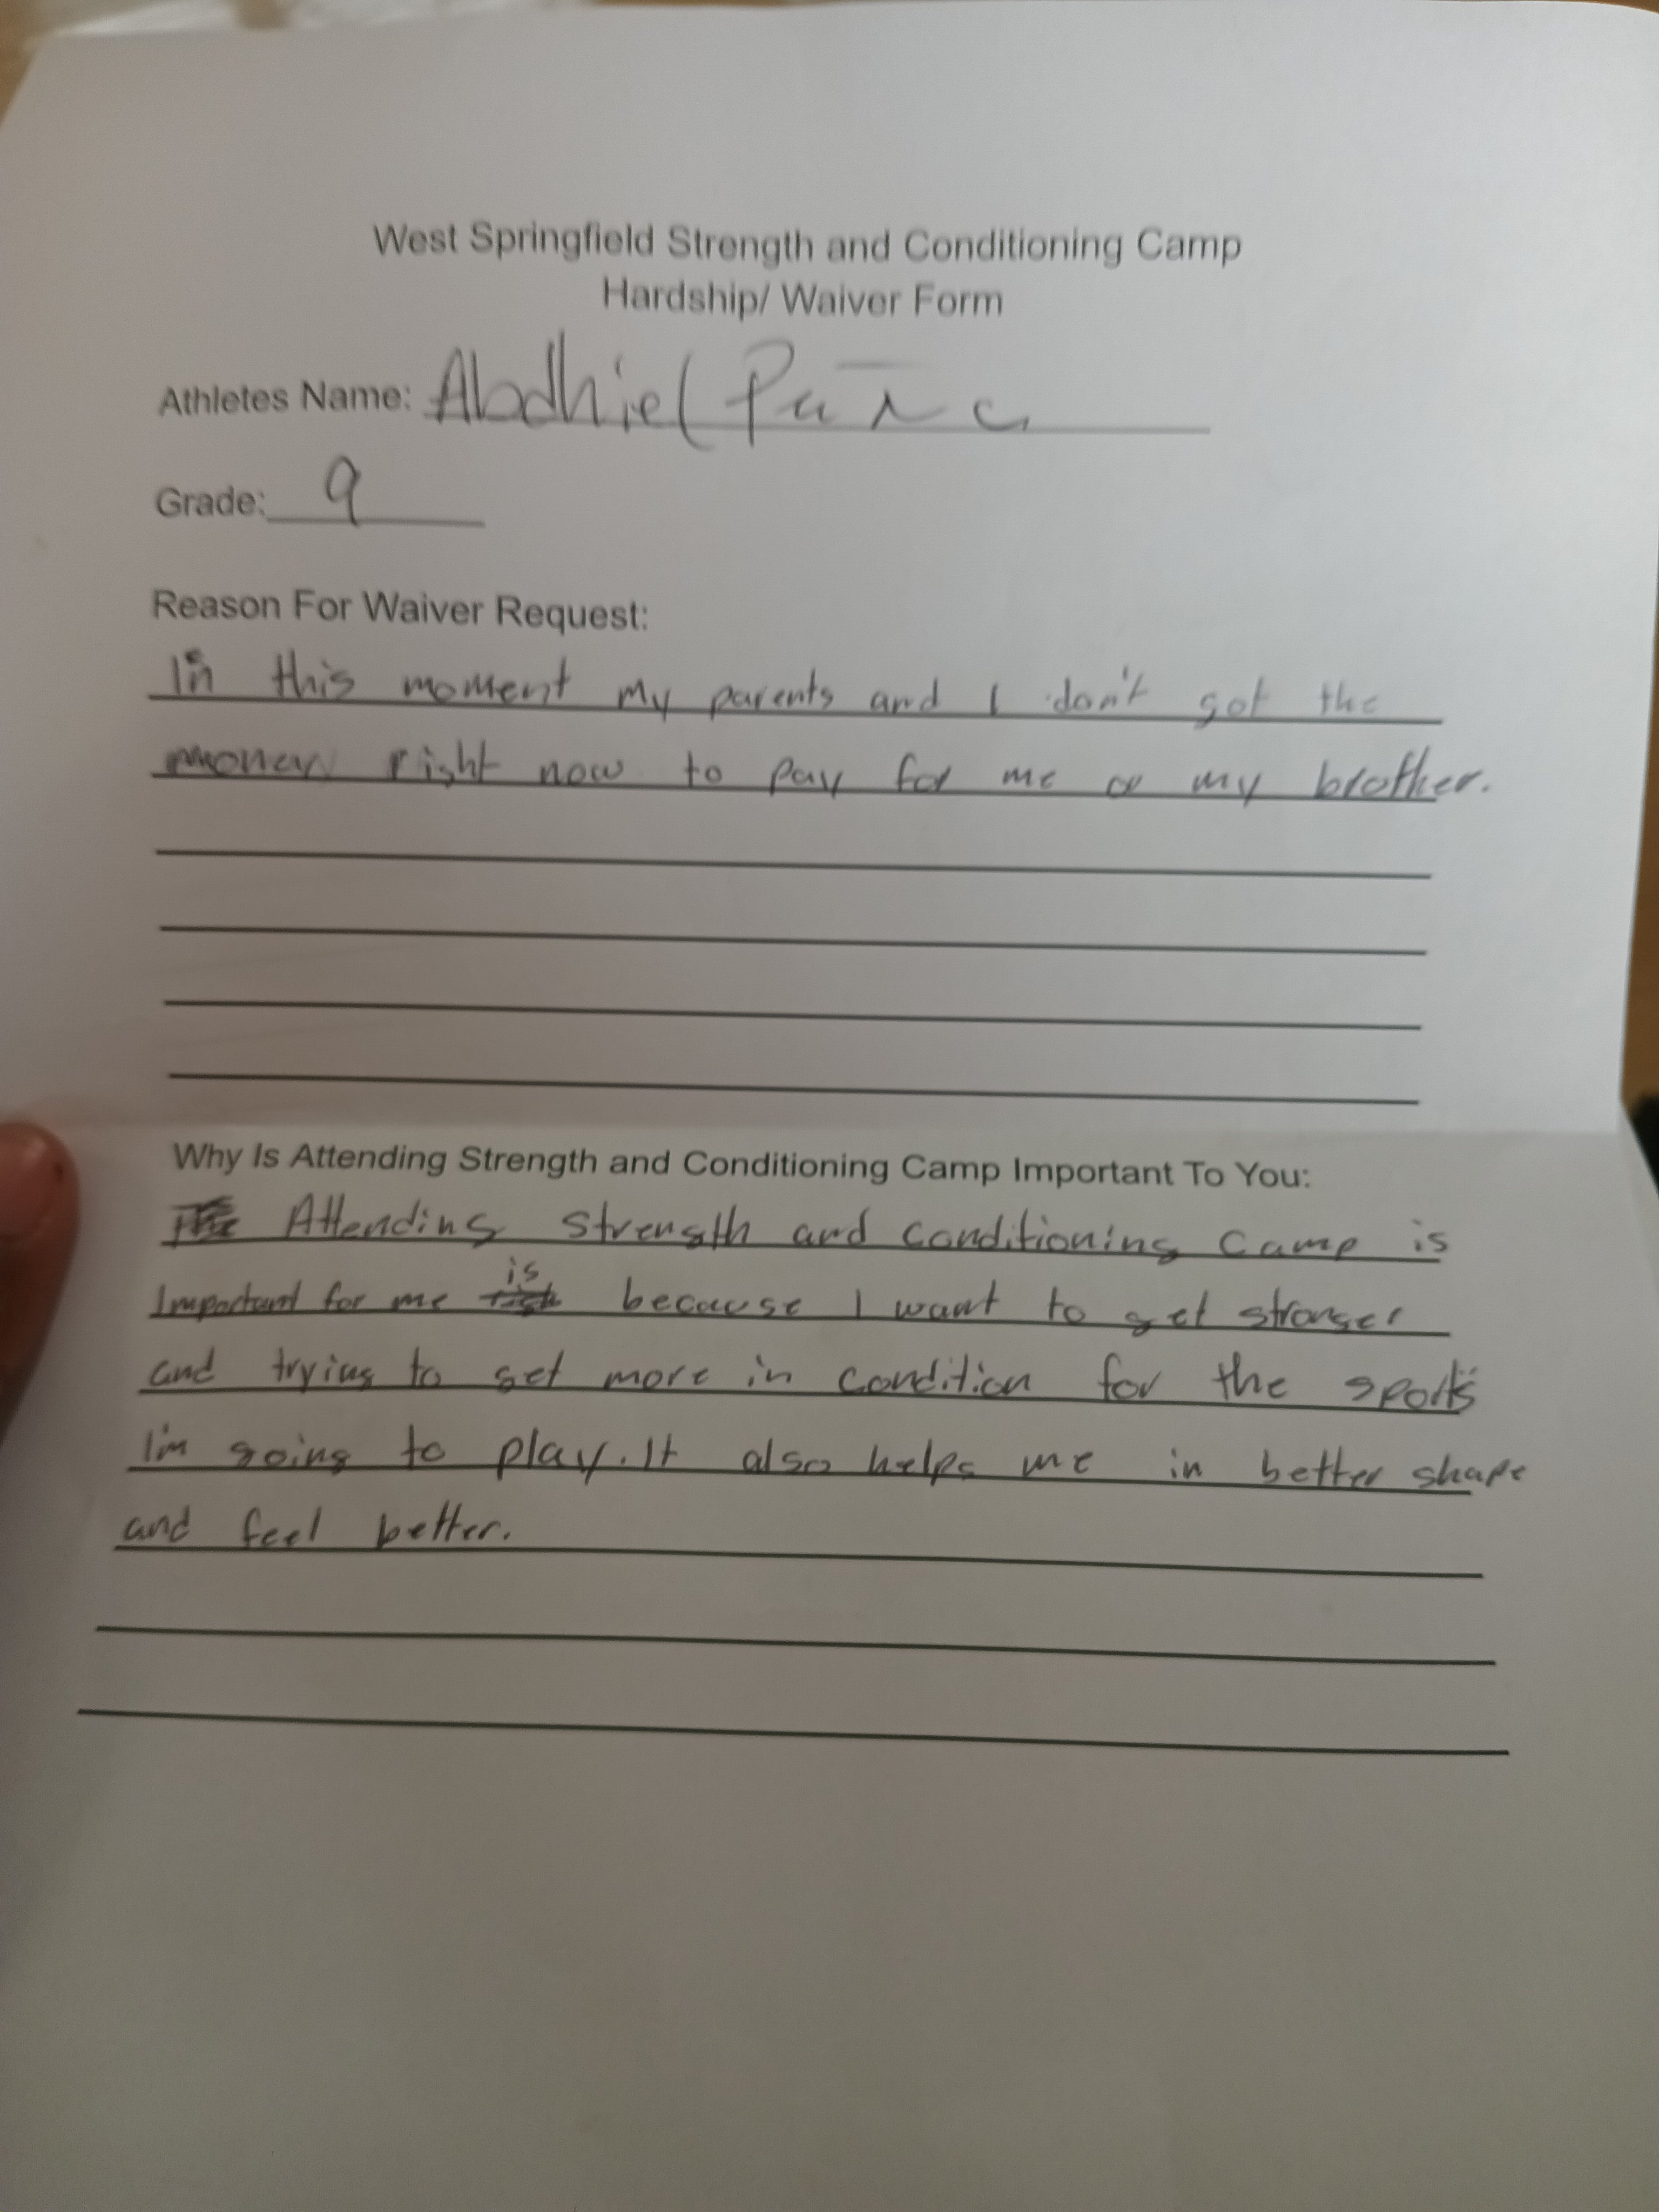 West Springfield Strength and Conditioning Camp
Hardship/ Waiver Form
Athletes Name: Abdhiel
Grade: 9
Reason For Waiver Request:
In this moment my parents and I don't got the
money right now to pay for me or my brother.
Why Is Attending Strength and Conditioning Camp Important To You:
Attending Strength and Conditioning Camp is
Important for me is because I want to get stronger
and trying to get more in condition for the sports
I'm going to play. It also helps me in better shape
and feel better.